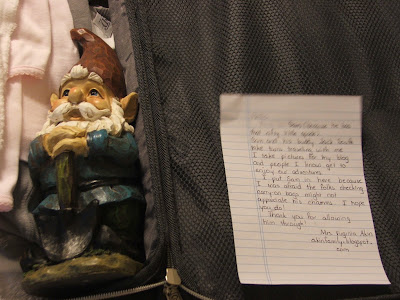 that silly little
Sam and his buddy Jack Scout
take turns traveling with me.
I take pictures for my blog
and people I know get to
enjoy our adventures.
I put Sam in here because
I was afraid the folks checking
carry-on bags might not
appreciate his charms. I hope
you do!
Thank you for allowing
him through!
Mrs.
.blogspot.
com